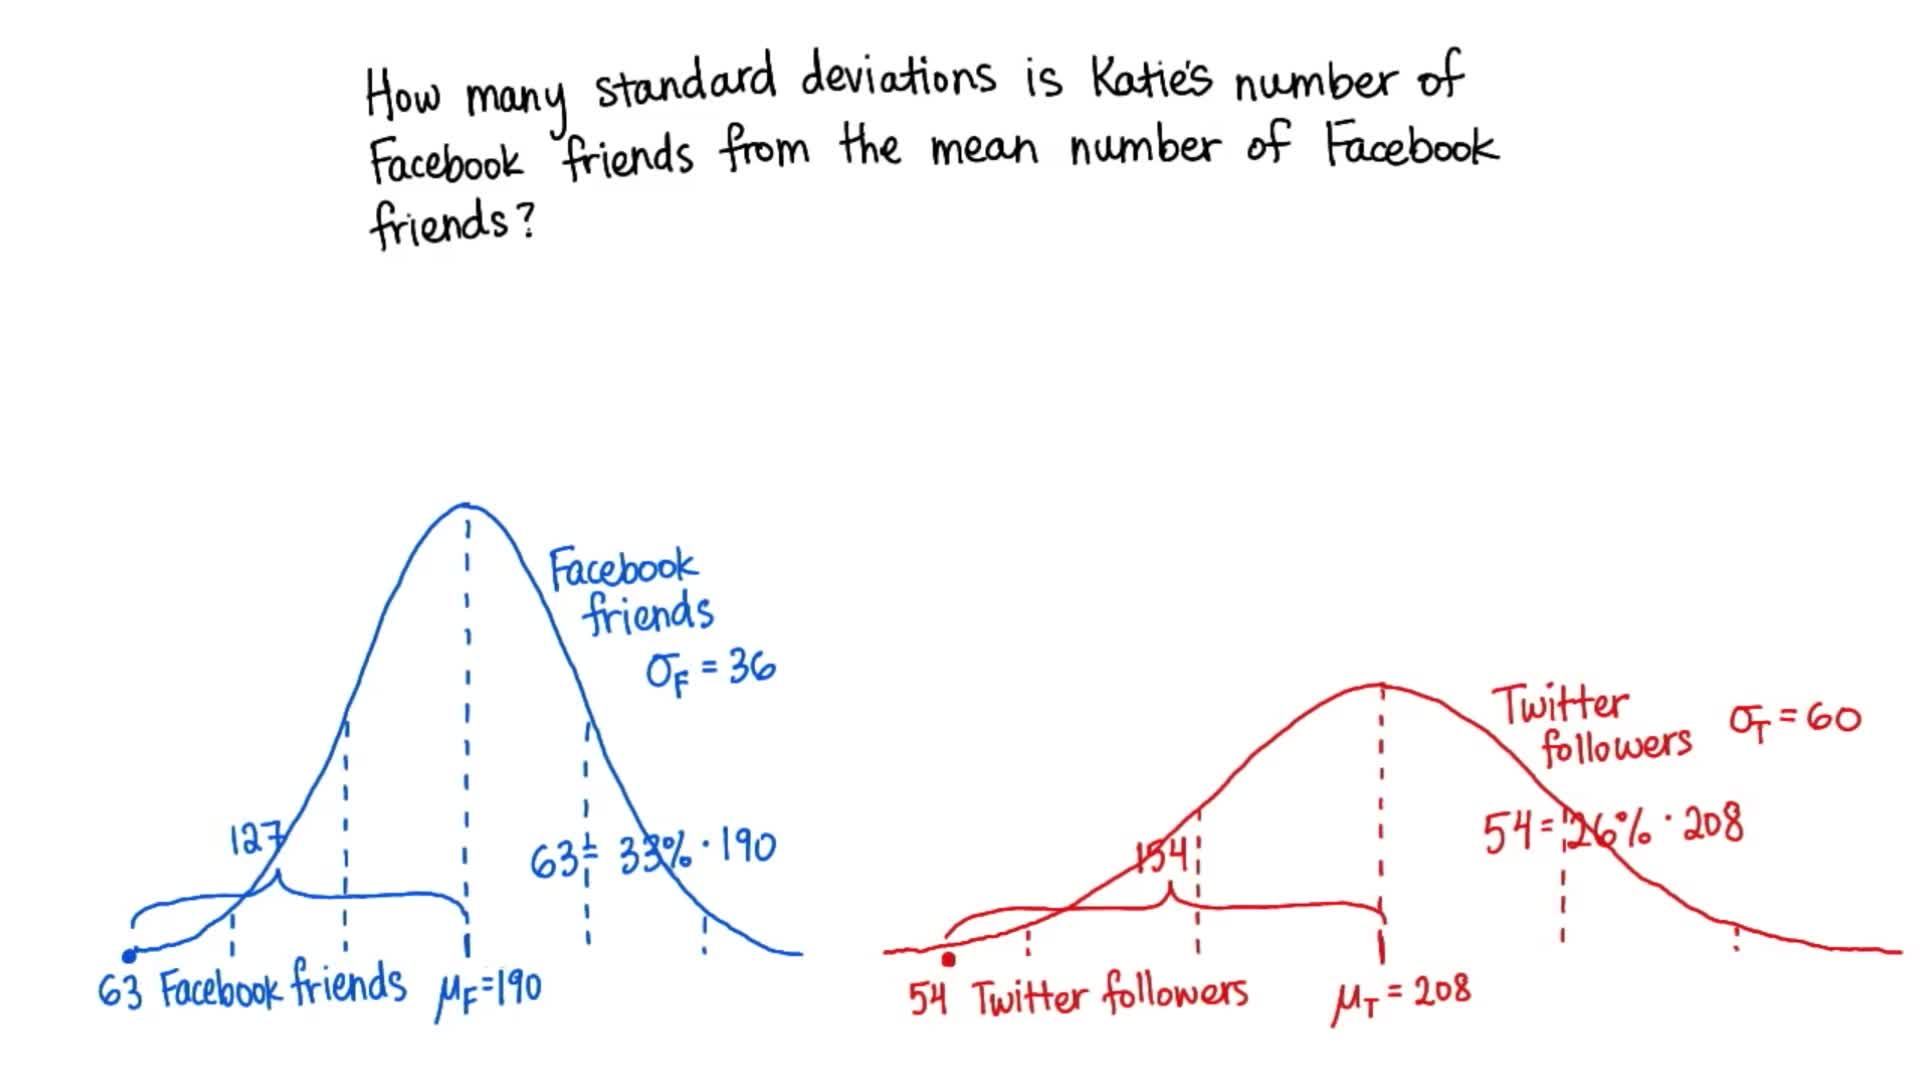 How many standard deviations is Katie's number of
Facebook friends from the mean number of Facebook
friends?
Facebook
friends
σF = 36
127
63 = 33% · 190
63 Facebook friends
μF = 190
Twitter
followers
σT = 60
154
54 = 26% · 208
54 Twitter followers
μT = 208